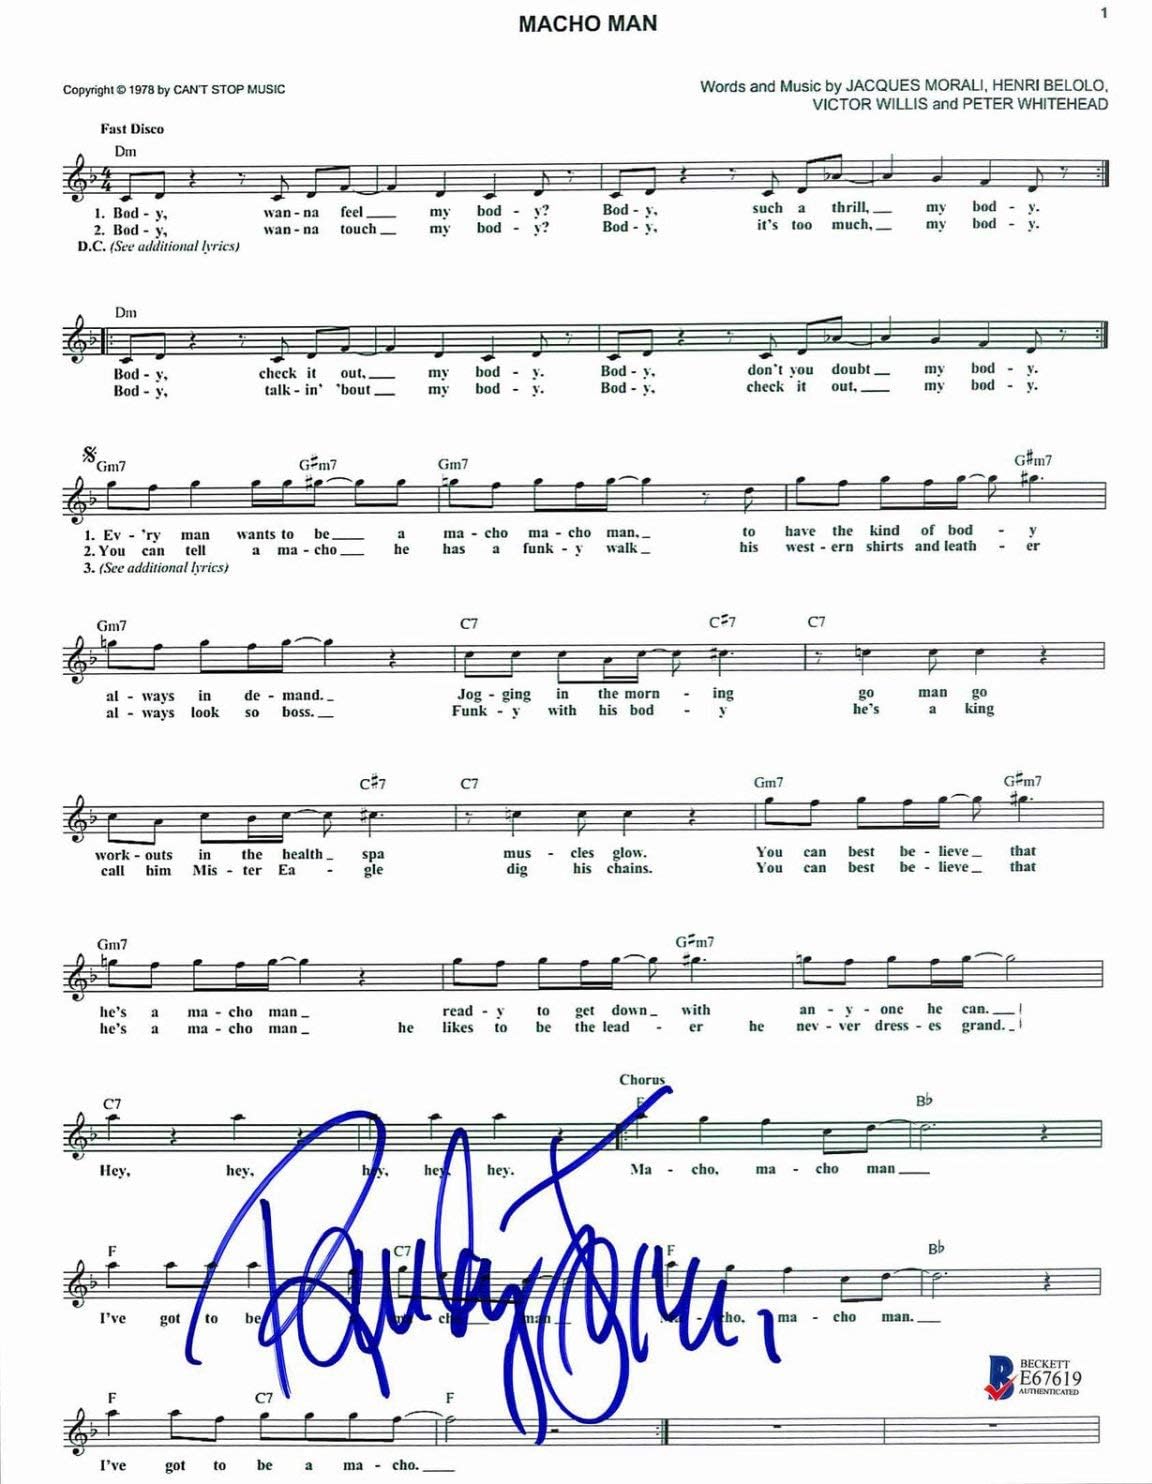 1
MACHO MAN
Copyright © 1978 by CAN'T STOP MUSIC
Words and Music by JACQUES MORALI, HENRI BELOLO,
VICTOR WILLIS and PETER WHITEHEAD
Fast Disco
Dm
1. Bod - y, wan - na feel my bod - y? Bod - y, such a thrill, my bod - y.
2. Bod - y, wan - na touch my bod - y? Bod - y, it's too much, my bod - y.
D.C. (See additional lyrics)
Dm
Bod - y, check it out, my bod - y. Bod - y, don't you doubt my bod - y.
Bod - y, talk - in' 'bout my bod - y. Bod - y, check it out, my bod - y.
Gm7 G#m7 Gm7 G#m7
1. Ev - 'ry man wants to be a ma - cho ma - cho man, to have the kind of bod - y
2. You can tell a ma - cho he has a funk - y walk his west - ern shirts and leath - er
3. (See additional lyrics)
Gm7 C7 C#7 C7
al - ways in de - mand. Jog - ging in the morn - ing go man go
al - ways look so boss. Funk - y with his bod - y he's a king
C#7 C7 Gm7 G#m7
work - outs in the health spa mus - cles glow. You can best be - lieve that
call him Mis - ter Ea - gle dig his chains. You can best be - lieve that
Gm7 G#m7
he's a ma - cho man read - y to get down with an - y - one he can.
he's a ma - cho man he likes to be the lead - er he nev - ver dress - es grand.
Chorus
C7 F Bb
Hey, hey, hey, hey, hey. Ma - cho, ma - cho man
F C7 F Bb
I've got to be cho man cho, ma - cho man.
BECKETT
E67619
AUTHENTICATED
F C7 F
I've got to be a ma - cho.